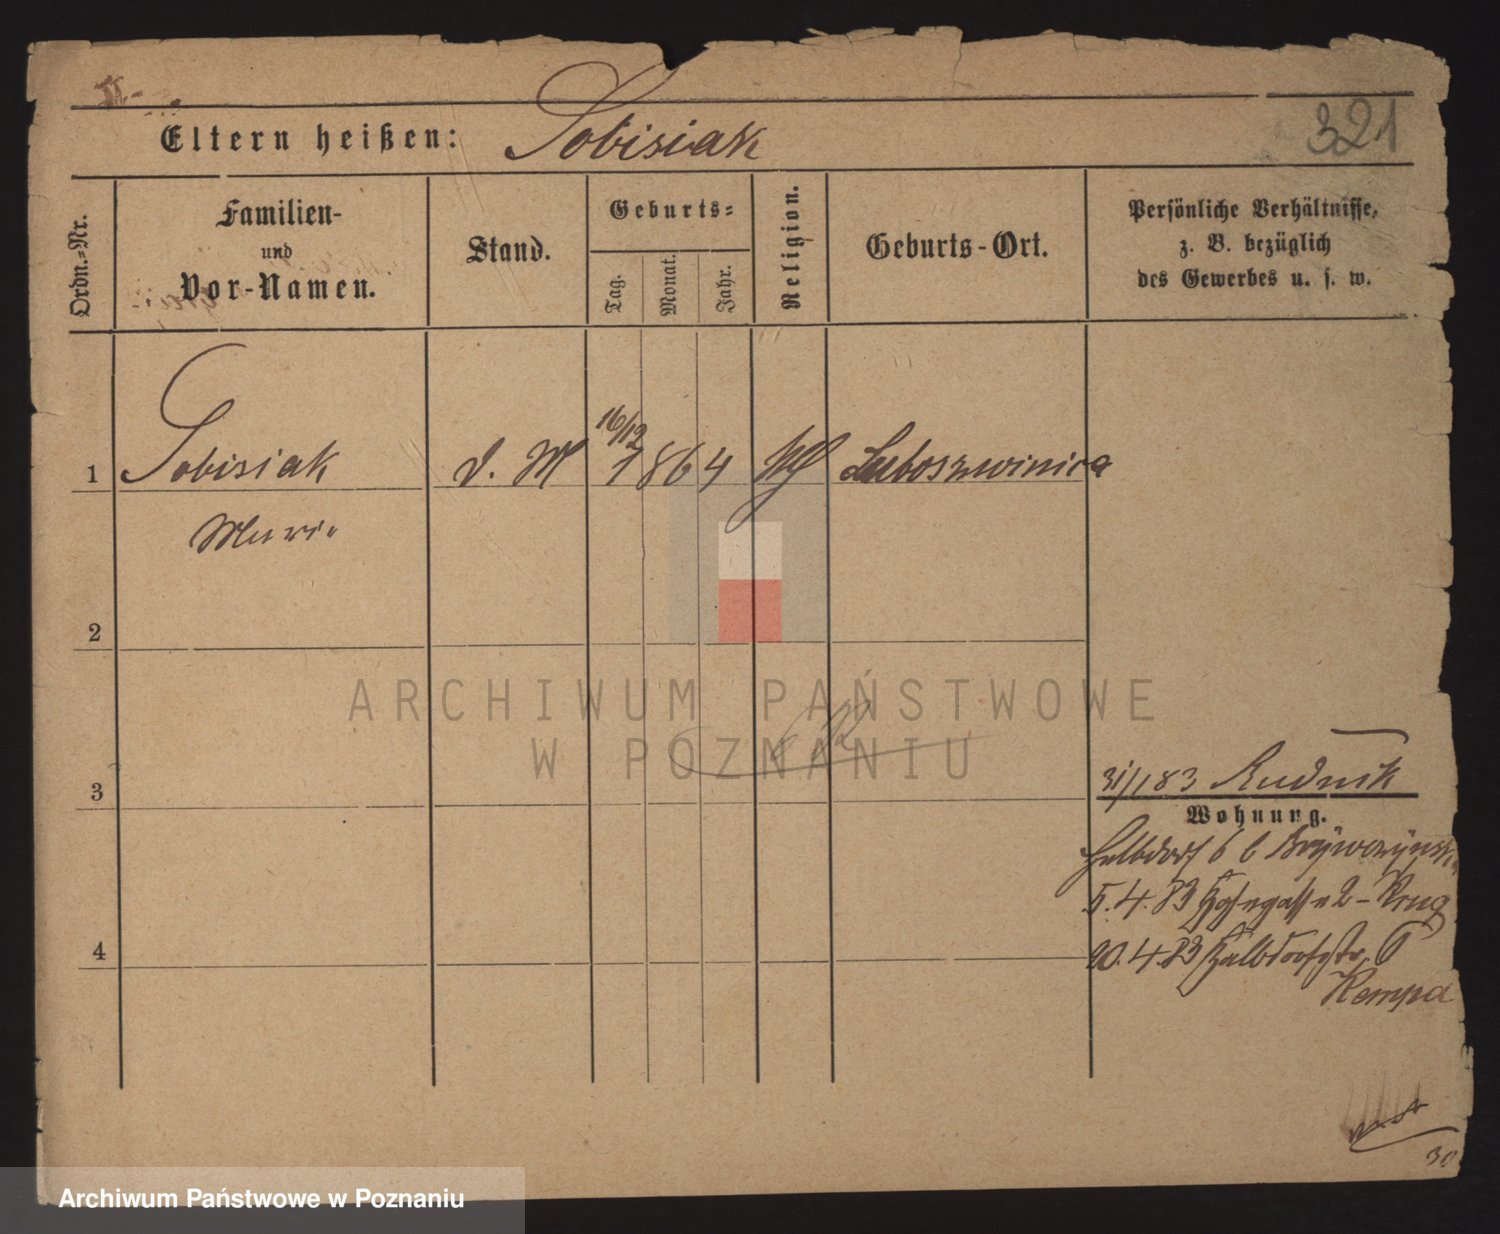 Eltern heißen: Sobisiak
321
Ordn.-Nr.
Familien-
und
Vor-Namen.
Stand.
Geburts-
Tag.
Monat.
Jahr.
Religion.
Geburts-Ort.
Persönliche Verhältnisse,
z. B. bezüglich
des Gewerbes u. s. w.
16/12
1 Sobisiak d. M 1864 Luboszwinica
Marie
2
ARCHIWUM PAŃSTWOWE
W POZNANIU
3
31/1 83 Rudnik
Wohnung.
Halbdorf 6 b
5.4.83 2 - Krug
4
20.4.83 Halbdorfstr. 6
Kempa
30
Archiwum Państwowe w Poznaniu